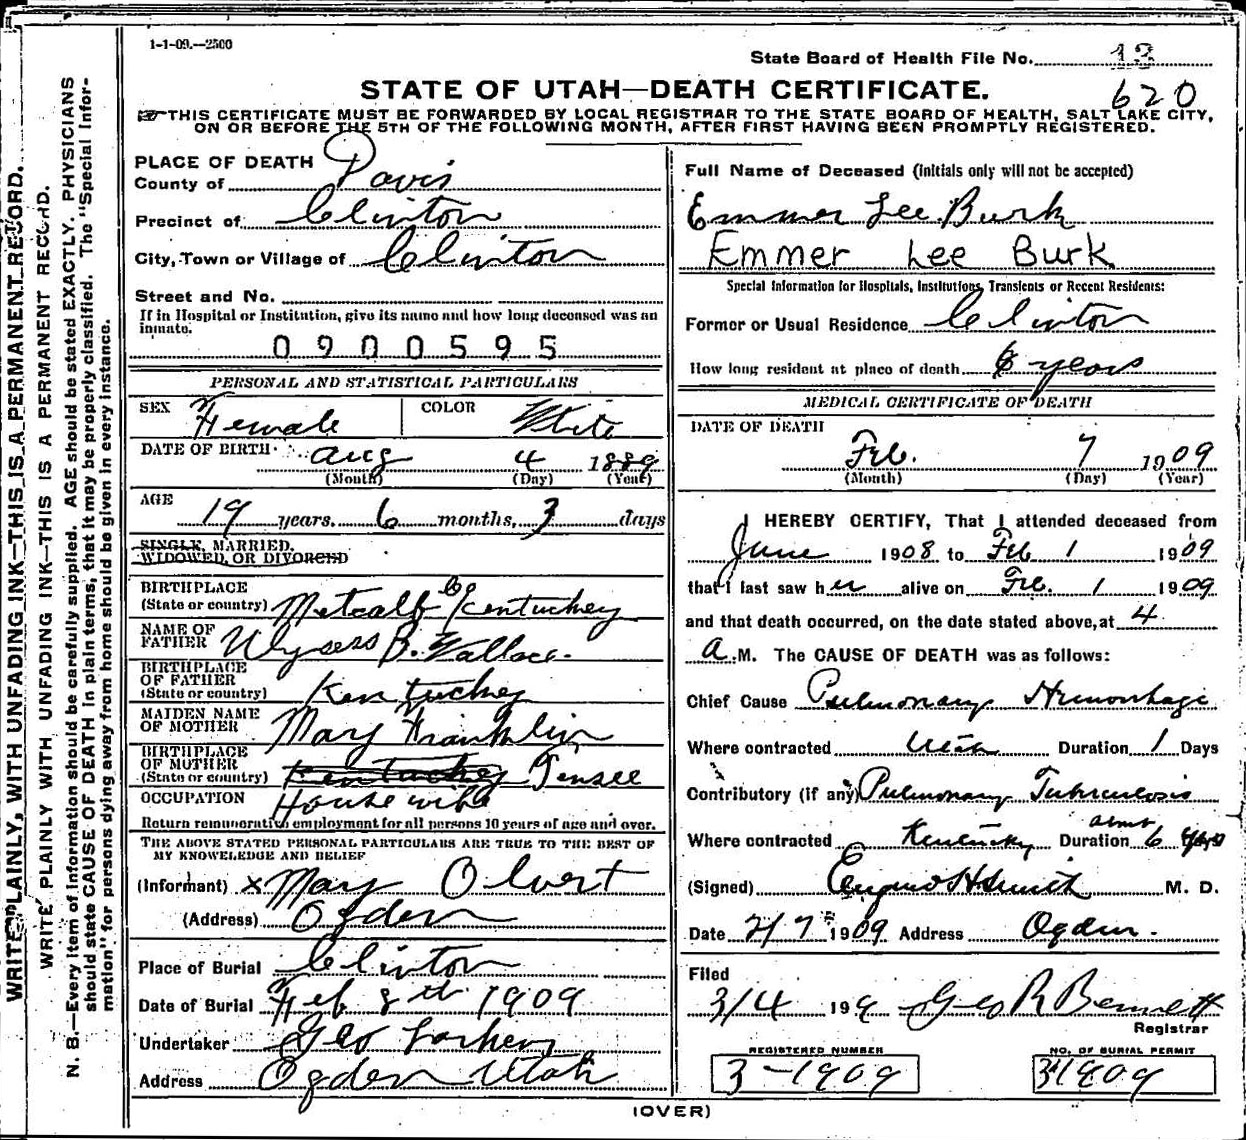 1-1-09.—2500
State Board of Health File No. 13
620
STATE OF UTAH—DEATH CERTIFICATE.
THIS CERTIFICATE MUST BE FORWARDED BY LOCAL REGISTRAR TO THE STATE BOARD OF HEALTH, SALT LAKE CITY,
ON OR BEFORE THE 5TH OF THE FOLLOWING MONTH, AFTER FIRST HAVING BEEN PROMPTLY REGISTERED.
WRITE PLAINLY, WITH UNFADING INK—THIS IS A PERMANENT RECORD.
WRITE PLAINLY WITH UNFADING INK—THIS IS A PERMANENT RECORD.
N. B.—Every item of information should be carefully supplied. AGE should be stated EXACTLY. PHYSICIANS
should state CAUSE OF DEATH in plain terms, that it may be properly classified. The "Special Infor-
mation" for persons dying away from home should be given in every instance.
PLACE OF DEATH
County of Davis
Precinct of Clinton
City, Town or Village of Clinton
Street and No.
If in Hospital or Institution, give its name and how long deceased was an
inmate.
0900595
PERSONAL AND STATISTICAL PARTICULARS
SEX Female COLOR White
DATE OF BIRTH Aug 4 1889
(Month) (Day) (Year)
AGE
19 years, 6 months, 3 days
SINGLE, MARRIED,
WIDOWED, OR DIVORCED
BIRTHPLACE
(State or country) Metcalf Co Kentuckey
NAME OF
FATHER Ulysess B. Wallace.
BIRTHPLACE
OF FATHER
(State or country) Kentuckey
MAIDEN NAME
OF MOTHER Mary Franklin
BIRTHPLACE
OF MOTHER
(State or country) Kentuckey Tensee
OCCUPATION House wife
Return remunerative employment for all persons 10 years of age and over.
THE ABOVE STATED PERSONAL PARTICULARS ARE TRUE TO THE BEST OF
MY KNOWLEDGE AND BELIEF
(Informant) x Mary Olvert
(Address) Ogden
Place of Burial Clinton
Date of Burial Feb 8th 1909
Undertaker Geo Larkin
Address Ogden Utah
Full Name of Deceased (Initials only will not be accepted)
Emmer Lee Burk
Emmer Lee Burk
Special Information for Hospitals, Institutions, Transients or Recent Residents:
Former or Usual Residence Clinton
How long resident at place of death 6 years
MEDICAL CERTIFICATE OF DEATH
DATE OF DEATH
Feb. 7 1909
(Month) (Day) (Year)
I HEREBY CERTIFY, That I attended deceased from
June 1908 to Feb 1 1909
that I last saw her alive on Feb. 1 1909
and that death occurred, on the date stated above, at 4
A.M. The CAUSE OF DEATH was as follows:
Chief Cause Pulmonary Hemorrhage
Where contracted Utah Duration 1 Days
Contributory (if any) Pulmonary Tuberculosis
Where contracted Kentucky Duration about 6 yrs
(Signed) Eugene H Smith M. D.
Date 2/7 1909 Address Ogden.
Filed
3/4 1909 Geo R Bennett
Registrar
REGISTERED NUMBER
3-1909
NO. OF BURIAL PERMIT
3 1909
(OVER)